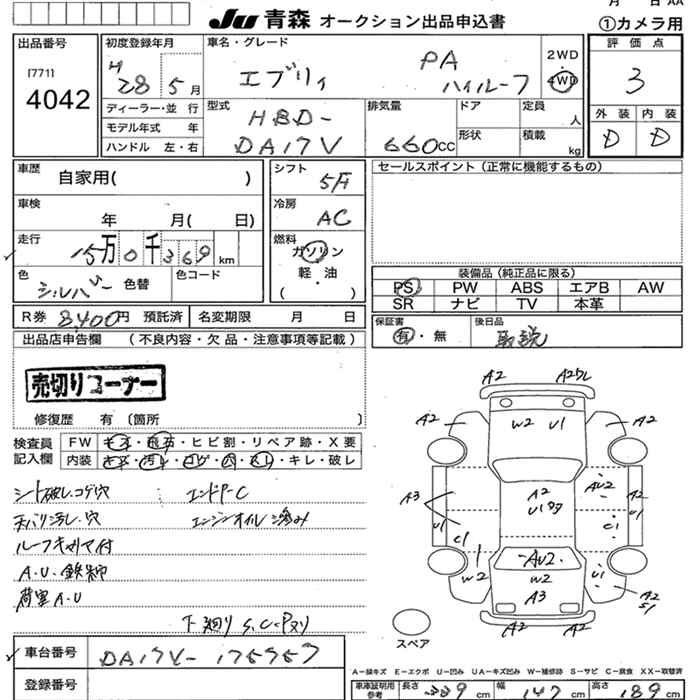 月 日 AA
JU 青森 オークション出品申込書
①カメラ用
出品番号
[771]
4042
初度登録年月
H 28 5月
ディーラー・並 行
モデル年式 年
ハンドル 左・右
車名・グレード
エブリィ PA ハイルーフ
2WD
4WD
型式
HBD-
DA17V
排気量
660cc
ドア
形状
定員
人
積載
kg
評価点
3
外装 内装
D D
車歴
自家用( )
車検
年 月( 日)
走行
15万0千369km
色
シルバー 色替
色コード
シフト
5F
冷房
AC
燃料
ガソリン
軽・油
( )
セールスポイント(正常に機能するもの)
装備品(純正品に限る)
PS PW ABS エアB AW
SR ナビ TV 本革
R券 8,400円 預託済
名変期限 月 日
保証書
有・無
後日品
取説
出品店申告欄 (不良内容・欠品・注意事項等記載)
売切りコーナー
修復歴 有 〔箇所 〕
検査員
記入欄
FW キズ・飛石・ヒビ割・リペア跡・X要
内装 キズ・汚レ・コゲ・穴・スレ・キレ・破レ
シート破レ.コゲ穴
エンドP-C
天バリ汚レ.穴
エンジンオイル滲み
ルーフキャリア付
A.U.鉄粉
荷室A.U
下廻り S.C-Pヌリ
A2 A2ワレ
A2 W2 U1 A2
A3 A2 AU2 A2
U1 U1
C1 C1
AU2
W2 W2 U1
A3 A2
S1
A2 A2
スペア
車台番号
DA17V-
登録番号
A-線キズ E-エクボ U-凹み UA-キズ凹み W-補修跡 S-サビ C-腐食 XX-取替済
車庫証明用
参考
長さ cm
幅 147 cm
高さ 189 cm